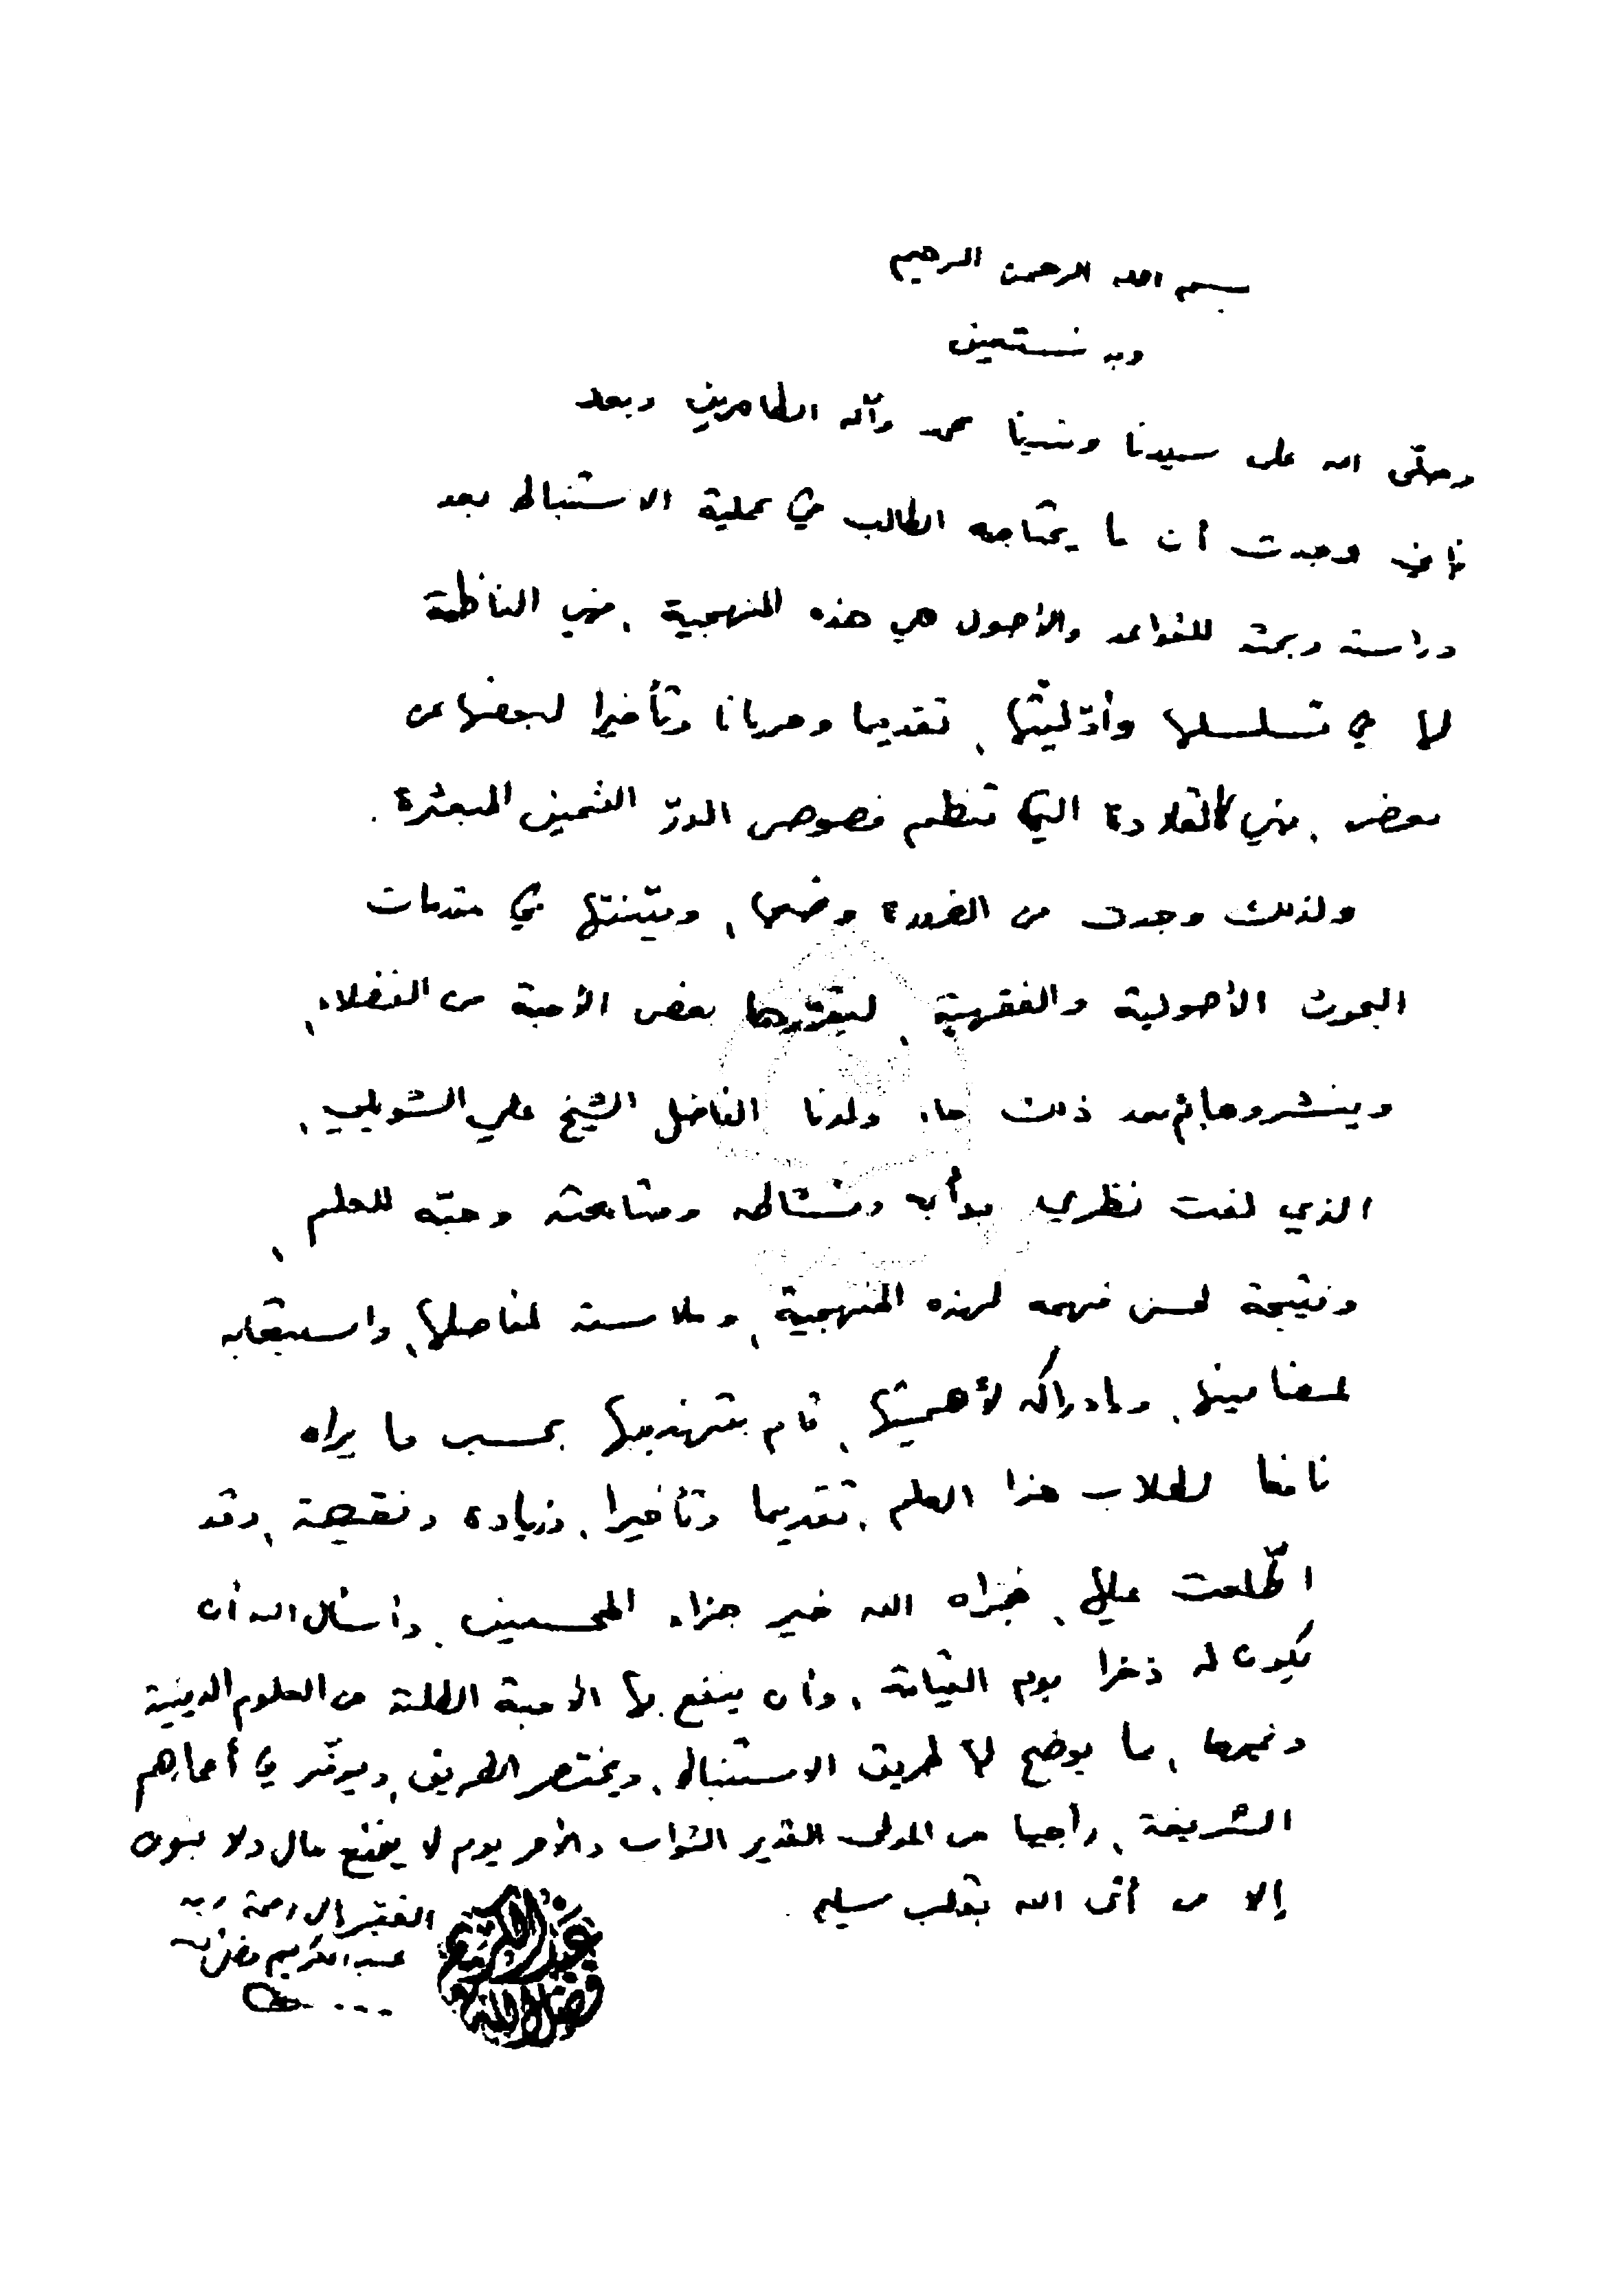 بسم الله الرحمن الرحيم
وبه نستعين
وصلّى الله على سيدنا ونبينا محمد وآله الطاهرين وبعد
فإني وجدت أن ما يحتاجه الطالب في عملية الاستنباط بعد
دراسته وبحثه للقواعد والأصول هي هذه المنهجية، فهي الناظمة
لها في تسلسلها وأوّليتها، تقديما وجريانا وتأخيرا لبعضها عن
بعض، فهي كالقلادة التي تنظم فصوص الدرّ الثمين المبعثرة.
ولذلك وجدت من الضرورة وضعها، وبيّنتها في مقدمات
البحوث الأصولية والفقهية، ليقرّرها بعض الأحبة من الفضلاء،
وينشروها، ثم بعد ذلك جاء ولدنا الفاضل الشيخ علي الشويلي،
الذي لفت نظري بدأبه ونشاطه ومتابعته وحبّه للعلم،
ونتيجة لحسن فهمه لهذه المنهجية، وملامسته لمفاصلها، واستيعابه
لمضامينها، وإدراكه لأهميتها، قام بتهذيبها بحسب ما يراه
نافعا لطلاب هذا العلم، تقديما وتأخيرا، وزيادة ونقيصة، وقد
اطّلعت عليها، فجزاه الله خير جزاء المحسنين، وأسأل الله أن
يكون له ذخرا يوم القيامة، وأن ينفع بها الأحبة الطلبة من العلوم الدينية
وغيرها، مما يوضح لها طريق الاستنباط، ويختصر الطريق، ويوفّر في أعمارهم
الشريفة، راجيا من المولى القدير الثواب والأجر يوم لا ينفع مال ولا بنون
إلا من أتى الله بقلب سليم.
الفقير إلى رحمة ربه
عبد الكريم فضل الله
عبد الكريم
فضل الله